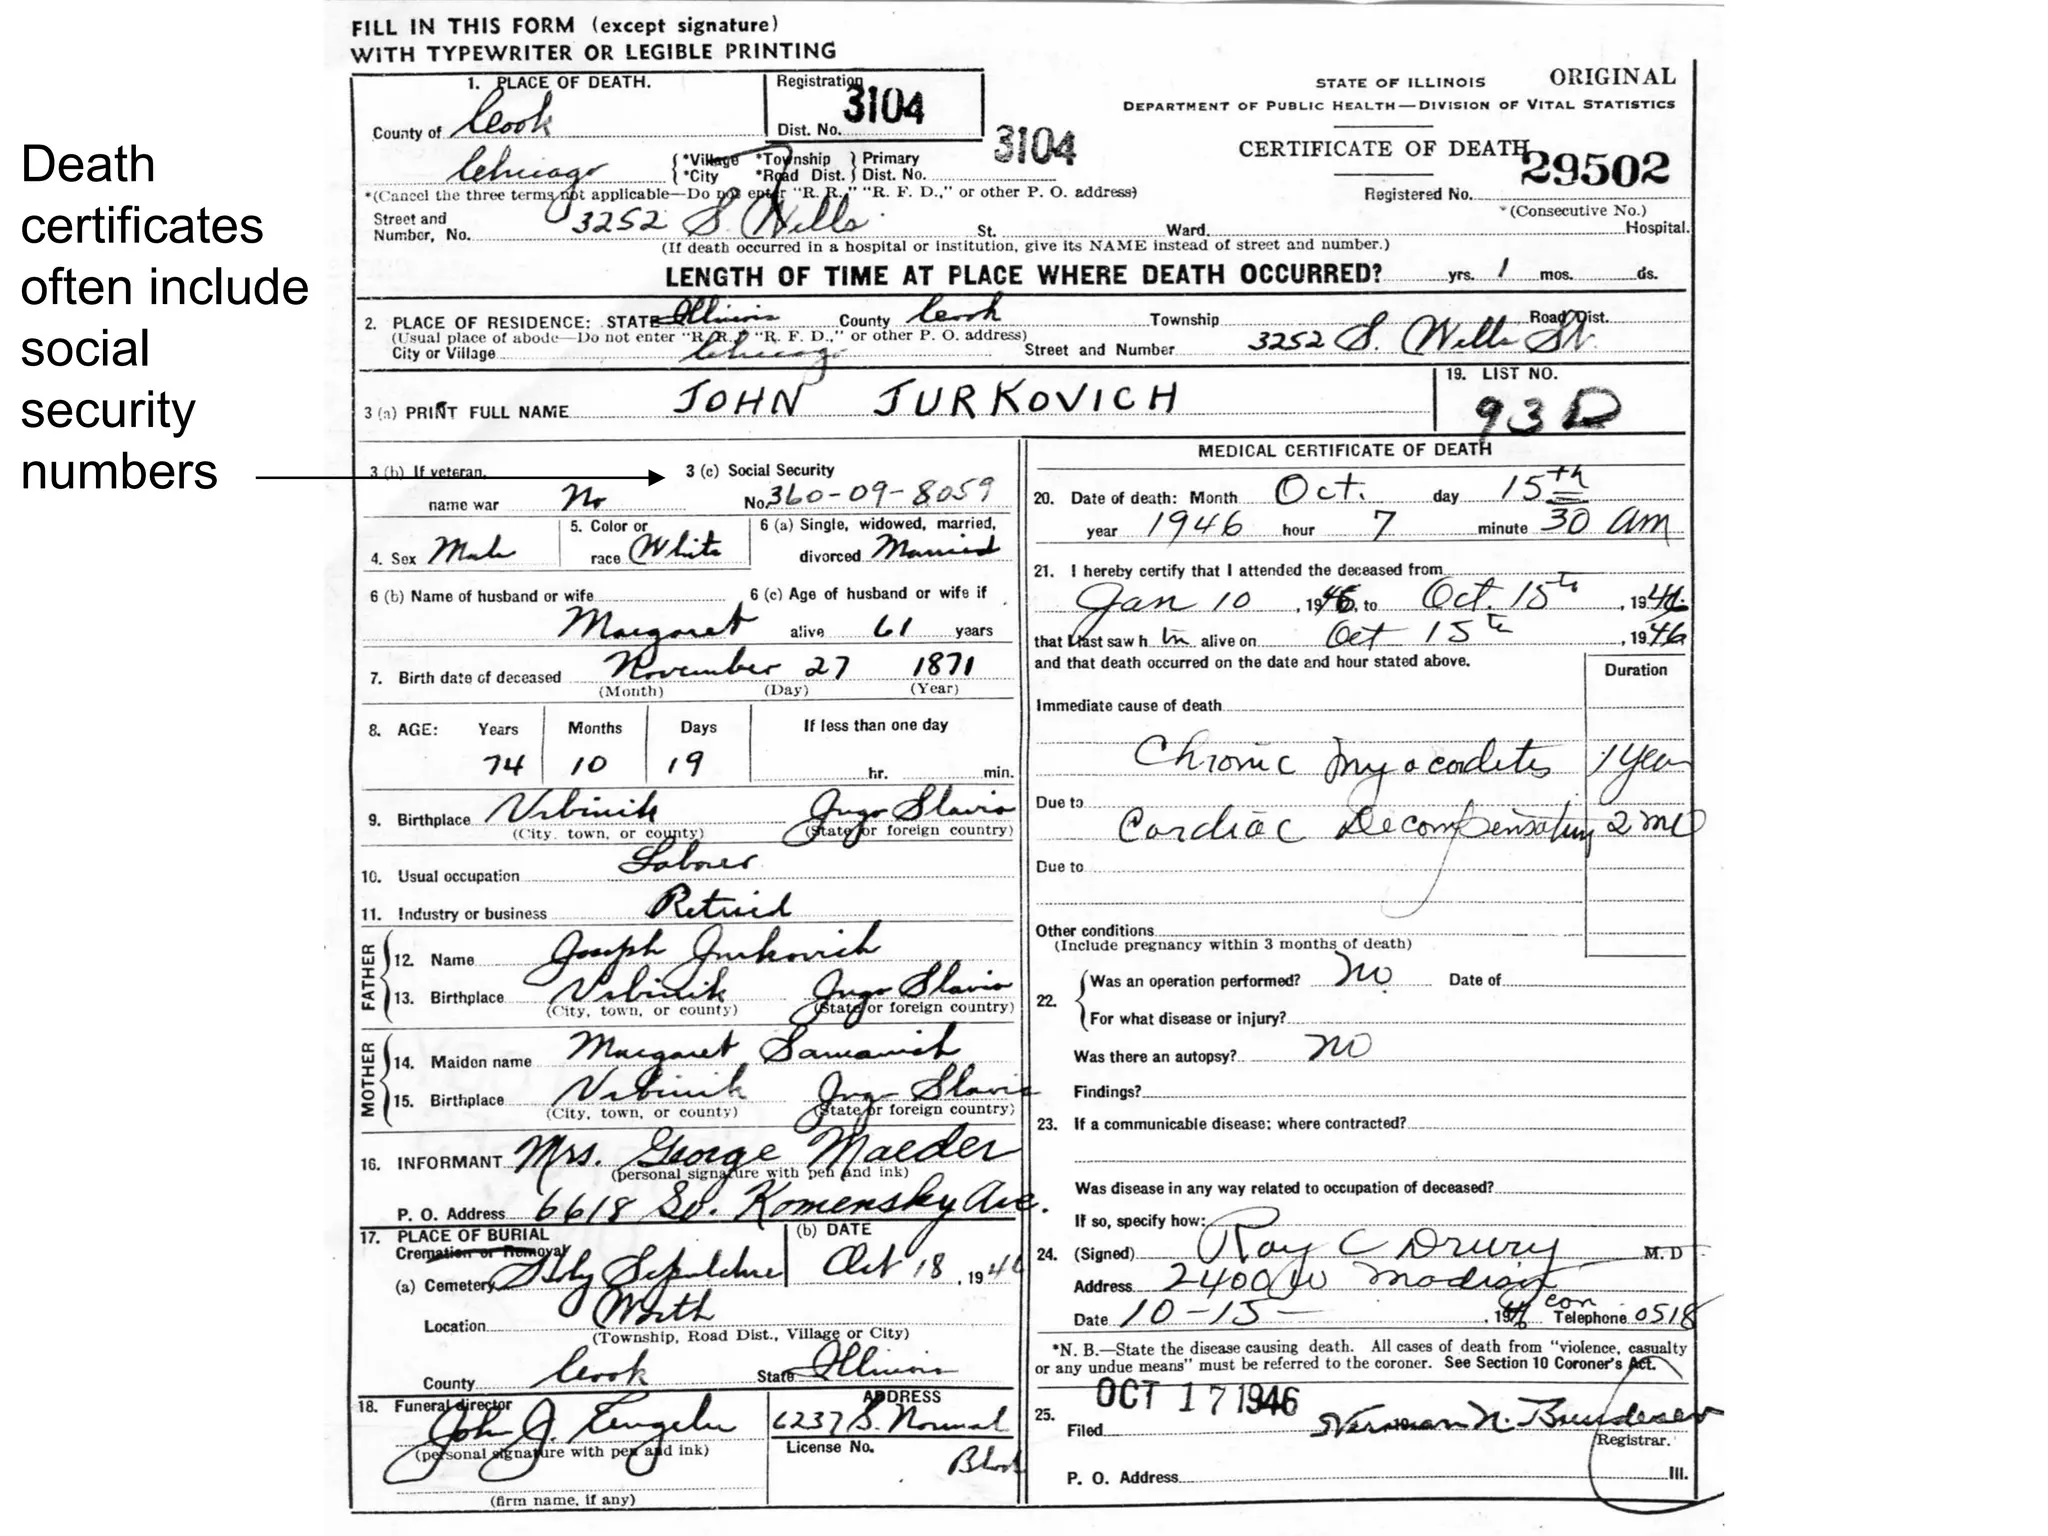 Death
certificates
often include
social
security
numbers
FILL IN THIS FORM (except signature)
WITH TYPEWRITER OR LEGIBLE PRINTING
1. PLACE OF DEATH.
County of Cook
Registration
Dist. No. 3104
3104
STATE OF ILLINOIS ORIGINAL
DEPARTMENT OF PUBLIC HEALTH—DIVISION OF VITAL STATISTICS
CERTIFICATE OF DEATH
29502
Registered No.
*(Consecutive No.)
Chicago { *Village *Township } Primary
{ *City *Road Dist. } Dist. No.
*(Cancel the three terms not applicable—Do not enter "R. R.," "R. F. D.," or other P. O. address)
Street and
Number, No. 3252 S. Wells St. Ward. Hospital.
(If death occurred in a hospital or institution, give its NAME instead of street and number.)
LENGTH OF TIME AT PLACE WHERE DEATH OCCURRED? yrs. 1 mos. ds.
2. PLACE OF RESIDENCE: STATE Illinois County Cook Township Road Dist.
(Usual place of abode—Do not enter "R. R.," "R. F. D.," or other P. O. address)
City or Village Chicago Street and Number 3252 S. Wells St.
3 (a) PRINT FULL NAME JOHN JURKOVICH
19. LIST NO.
93D
3 (b) If veteran,
name war No
3 (c) Social Security
No. 360-09-8059
4. Sex Male
5. Color or
race White
6 (a) Single, widowed, married,
divorced Married
6 (b) Name of husband or wife
Margaret
6 (c) Age of husband or wife if
alive 61 years
7. Birth date of deceased November 27 1871
(Month) (Day) (Year)
8. AGE: Years Months Days If less than one day
74 10 19 hr. min.
9. Birthplace Vrbinik Jugo Slavia
(City, town, or county) (State or foreign country)
10. Usual occupation Laborer
11. Industry or business Retired
FATHER
12. Name Joseph Jurkovich
13. Birthplace Vrbinik Jugo Slavia
(City, town, or county) (State or foreign country)
MOTHER
14. Maiden name Margaret
15. Birthplace Vrbinik Jugo Slavia
(City, town, or county) (State or foreign country)
16. INFORMANT Mrs. George Maeder
(personal signature with pen and ink)
P. O. Address 6618 So. Komensky Ave.
17. PLACE OF BURIAL
Cremation or Removal
(a) Cemetery Holy Sepulchre
(b) DATE
Oct 18, 1946
Location Worth
(Township, Road Dist., Village or City)
County Cook State Illinois
18. Funeral director
John J.
(personal signature with pen and ink)
(firm name, if any)
ADDRESS
6237 S. Normal
License No.
Blvd
MEDICAL CERTIFICATE OF DEATH
20. Date of death: Month Oct. day 15th
year 1946 hour 7 minute 30 am
21. I hereby certify that I attended the deceased from
Jan 10, 1946, to Oct. 15th, 1946
that I last saw him alive on Oct 15th, 1946
and that death occurred on the date and hour stated above.
Duration
Immediate cause of death
Chronic Myocardites 1 Year
Due to
Cardiac 2 mo
Due to
Other conditions
(Include pregnancy within 3 months of death)
22. Was an operation performed? no Date of
For what disease or injury?
Was there an autopsy? no
Findings?
23. If a communicable disease: where contracted?
Was disease in any way related to occupation of deceased?
If so, specify how:
24. (Signed) Ray C Drury M. D
Address 2400 W Madison
Date 10-15- 1946 Telephone 0518
*N. B.—State the disease causing death. All cases of death from "violence, casualty
or any undue means" must be referred to the coroner. See Section 10 Coroner's Act.
OCT 17 1946
25. Filed Herman N. Bundesen
Registrar.
P. O. Address Ill.